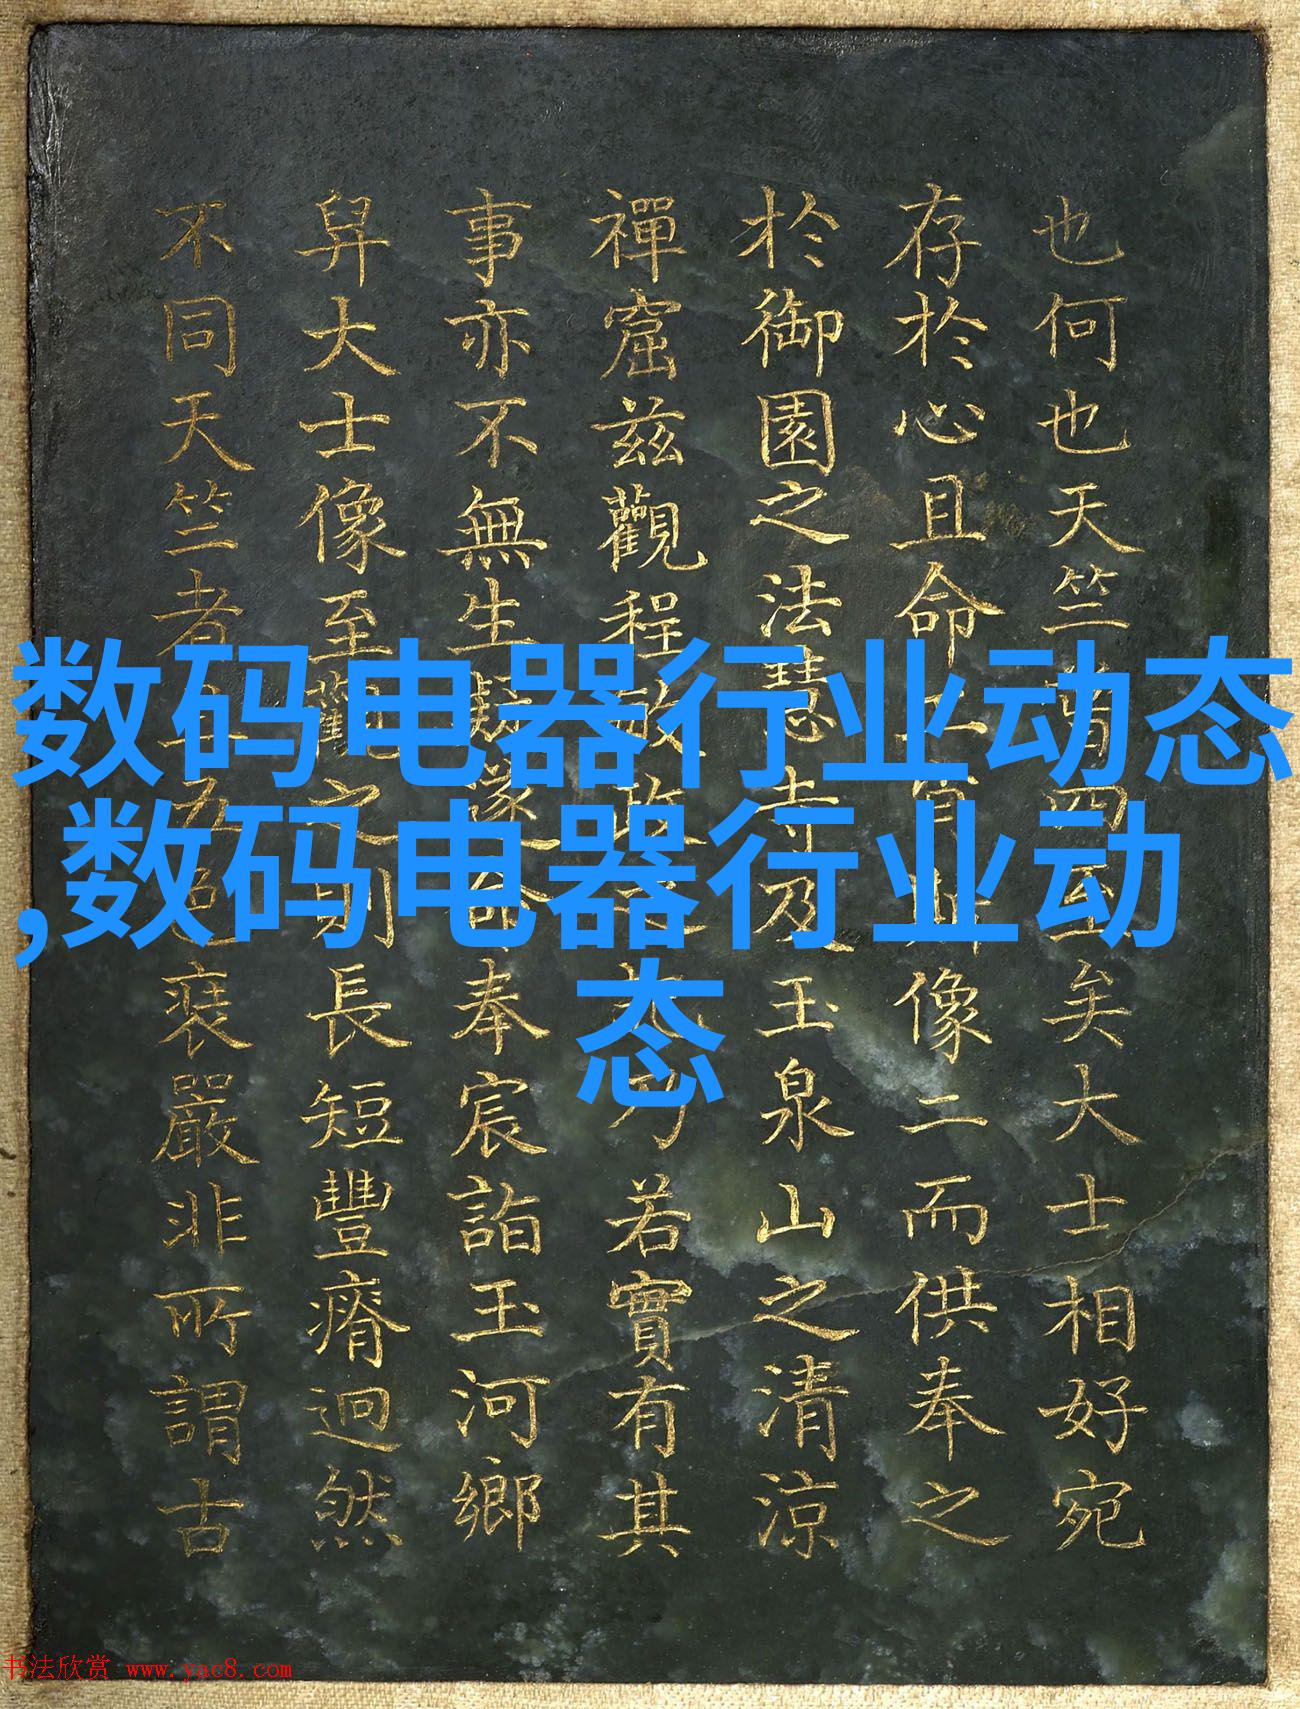 也何也天竺四矣大士相好宛
存於心且命像二而供奉之
於御園之法慧寺及玉泉山之清涼
禪窟茲觀程敏政之乃若實有其
事亦不無生疑遂命奉宸詣玉河鄉
舁大士像至觀之則長短豐瘠迥然
不同天竺者具五色裝嚴非所謂古
数码电器行业动态
,数码电器行业动
态
书法欣赏 www.yac8.com